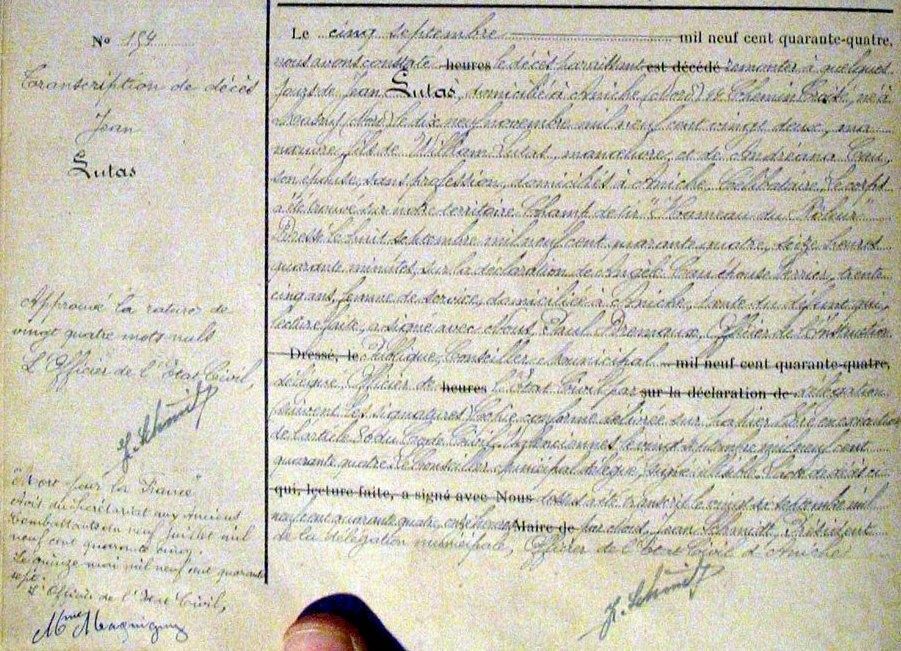 N° 154
Transcription de décès
Jean
Lutas
Approuvé la rature de
vingt quatre mots nuls
L'Officier de l'Etat Civil,
J. Schmidt
"Mort pour la France"
Avis du Secrétariat aux Anciens
Combattants du neuf juillet mil
neuf cent quarante cinq.
Le quinze mai mil neuf cent quarante
sept.
L'Officier de l'Etat Civil,
Mme
Le cinq septembre mil neuf cent quarante-quatre,
nous avons constaté heures le décès paraissant est décédé remonter à quelques
jours de Jean Lutas, domicilié à Aniche (Nord) né à
(Nord) le dix neuf novembre mil neuf cent vingt deux, ma
nœuvre, fils de William Lutas, manœuvre, et de Andréana Cau,
son épouse, sans profession, domiciliés à Aniche. Célibataire. Le corps
a été trouvé sur notre territoire Champ de tir
Dressé le huit septembre mil neuf cent quarante quatre, seize heures
quarante minutes, sur la déclaration de Angèle Cau épouse trente
cinq ans, femme de service, domiciliée à Aniche, tante du défunt qui,
lecture faite, a signé avec Nous, Paul Officier de l'Instruction
Dressé, le Publique, Conseiller Municipal mil neuf cent quarante-quatre,
délégué Officier de heures l'Etat Civil par sur la déclaration de délégation
suivent les signatures. Copie conforme délivrée sur papier libre en
de l'article 80 du Code Civil. Valenciennes le vingt septembre mil neuf cent
quarante quatre. Le Conseiller Municipal délégué, signé
qui, lecture faite, a signé avec Nous transcrit le vingt septembre mil
neuf cent quarante quatre, onze heures Maire de par Nous, Jean Schmidt, Président
de la délégation municipale, Officier de l'Etat Civil d'Aniche
J. Schmidt